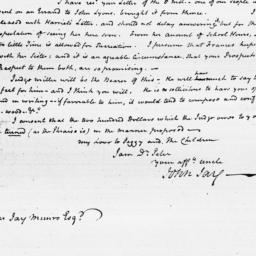 I have recd. your Letter of the 8 Inst. — one of our people
sent on an Errand to John Lyons, brought it from thence. I
pleased with Harriet's Letter, and should not delay answering it but for the
expectation of seeing her here soon. From her account of School Hours,
too little Time is allowed for Recreation — I presume that Frances hopes
with her Sister; and it is an agreeable circumstance, that your Prospects
Respect to them both, are so promising. —
Judge Miller will be the Bearer of this — He will have to say
I feel for him — and I think you will. He is solicitous to have your
and in writing — if favorable to him, it would tend to compose and
I consent that the two hundred Dollars which the Judge owes to
be turned (as the Phrase is) in the manner proposed —
my Love to Peggy and the Children
I am Dr. Peter
your afft. uncle
John Jay —
Jay Munro Esqr.